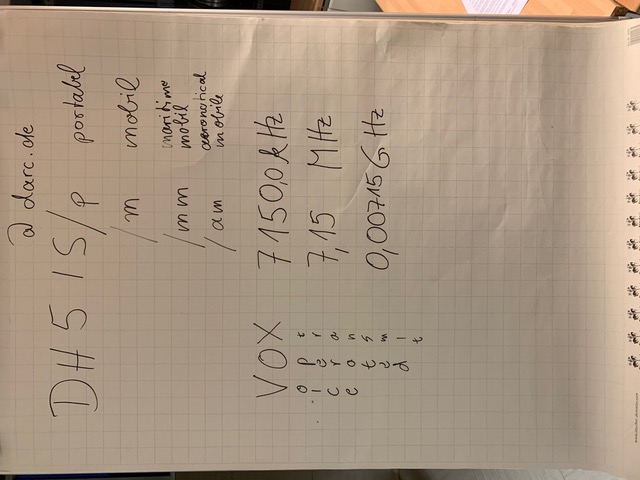 @ darc.de
DH5IS/p portabel
/m mobil
/mm maritime mobil
/am aeronotical mobile
VOX 7150,0 kHz
7,15 MHz
0,00715 GHz
o p t
i e r
c r a
e a n
t s
e m
d i
t